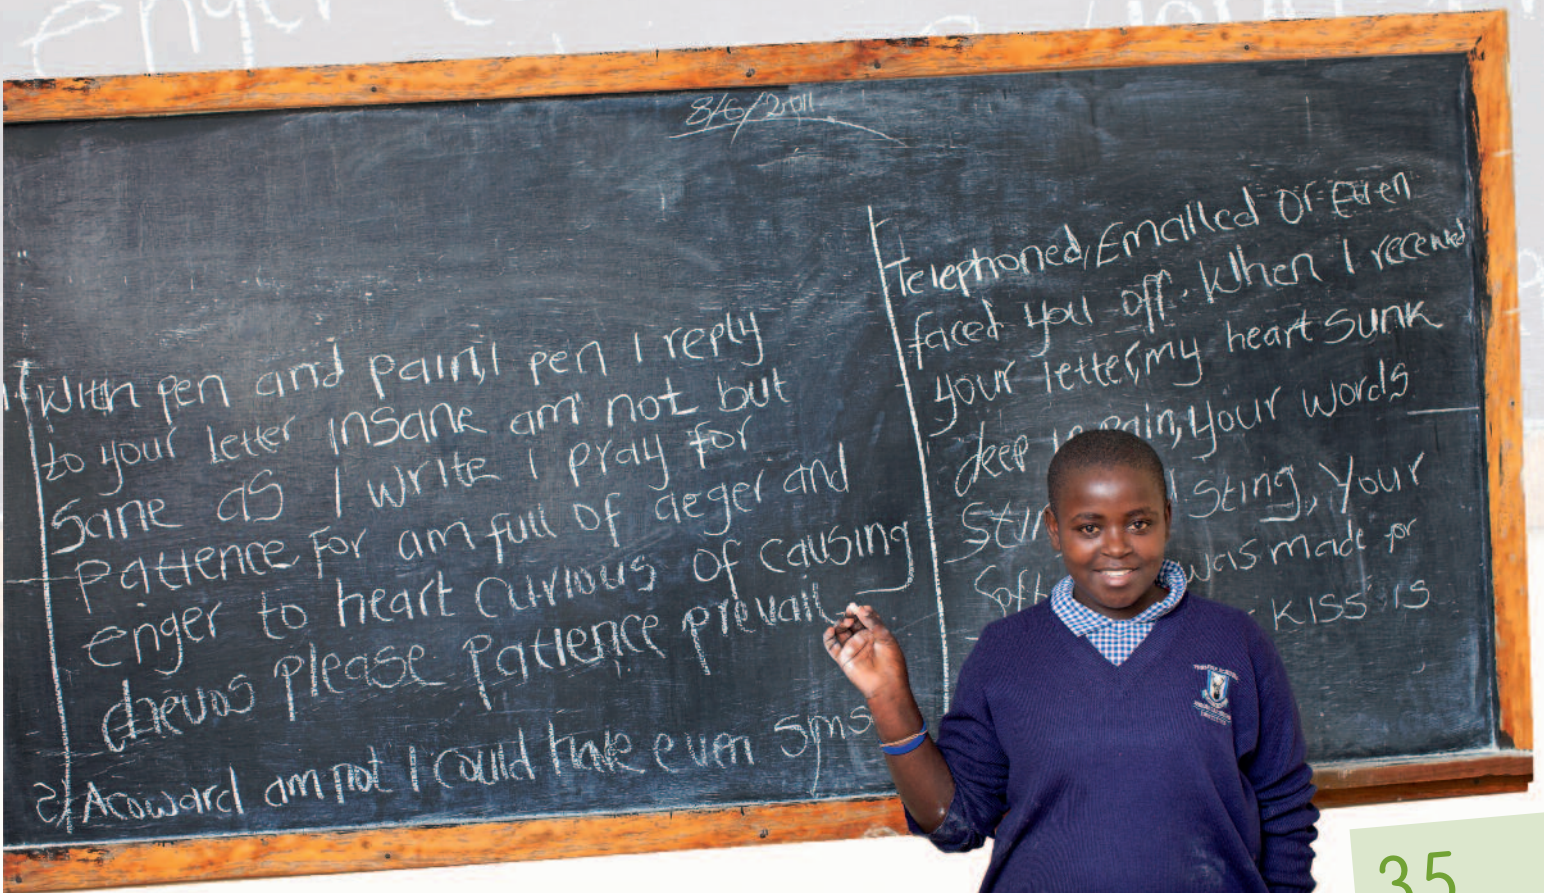 8/6/2011
With pen and pain, I pen I reply
to your letter insane am not but
Sane as I write I pray for
Patience For am full of aeger and
enger to heart curious of causing
please Patience prevail
2) Acoward am not I could have even sms
Telephoned, Emailed or Even
faced you off. When I received
your letter, my heart sunk
deep pain, your words
sting, Your
was made for
KISS IS
35